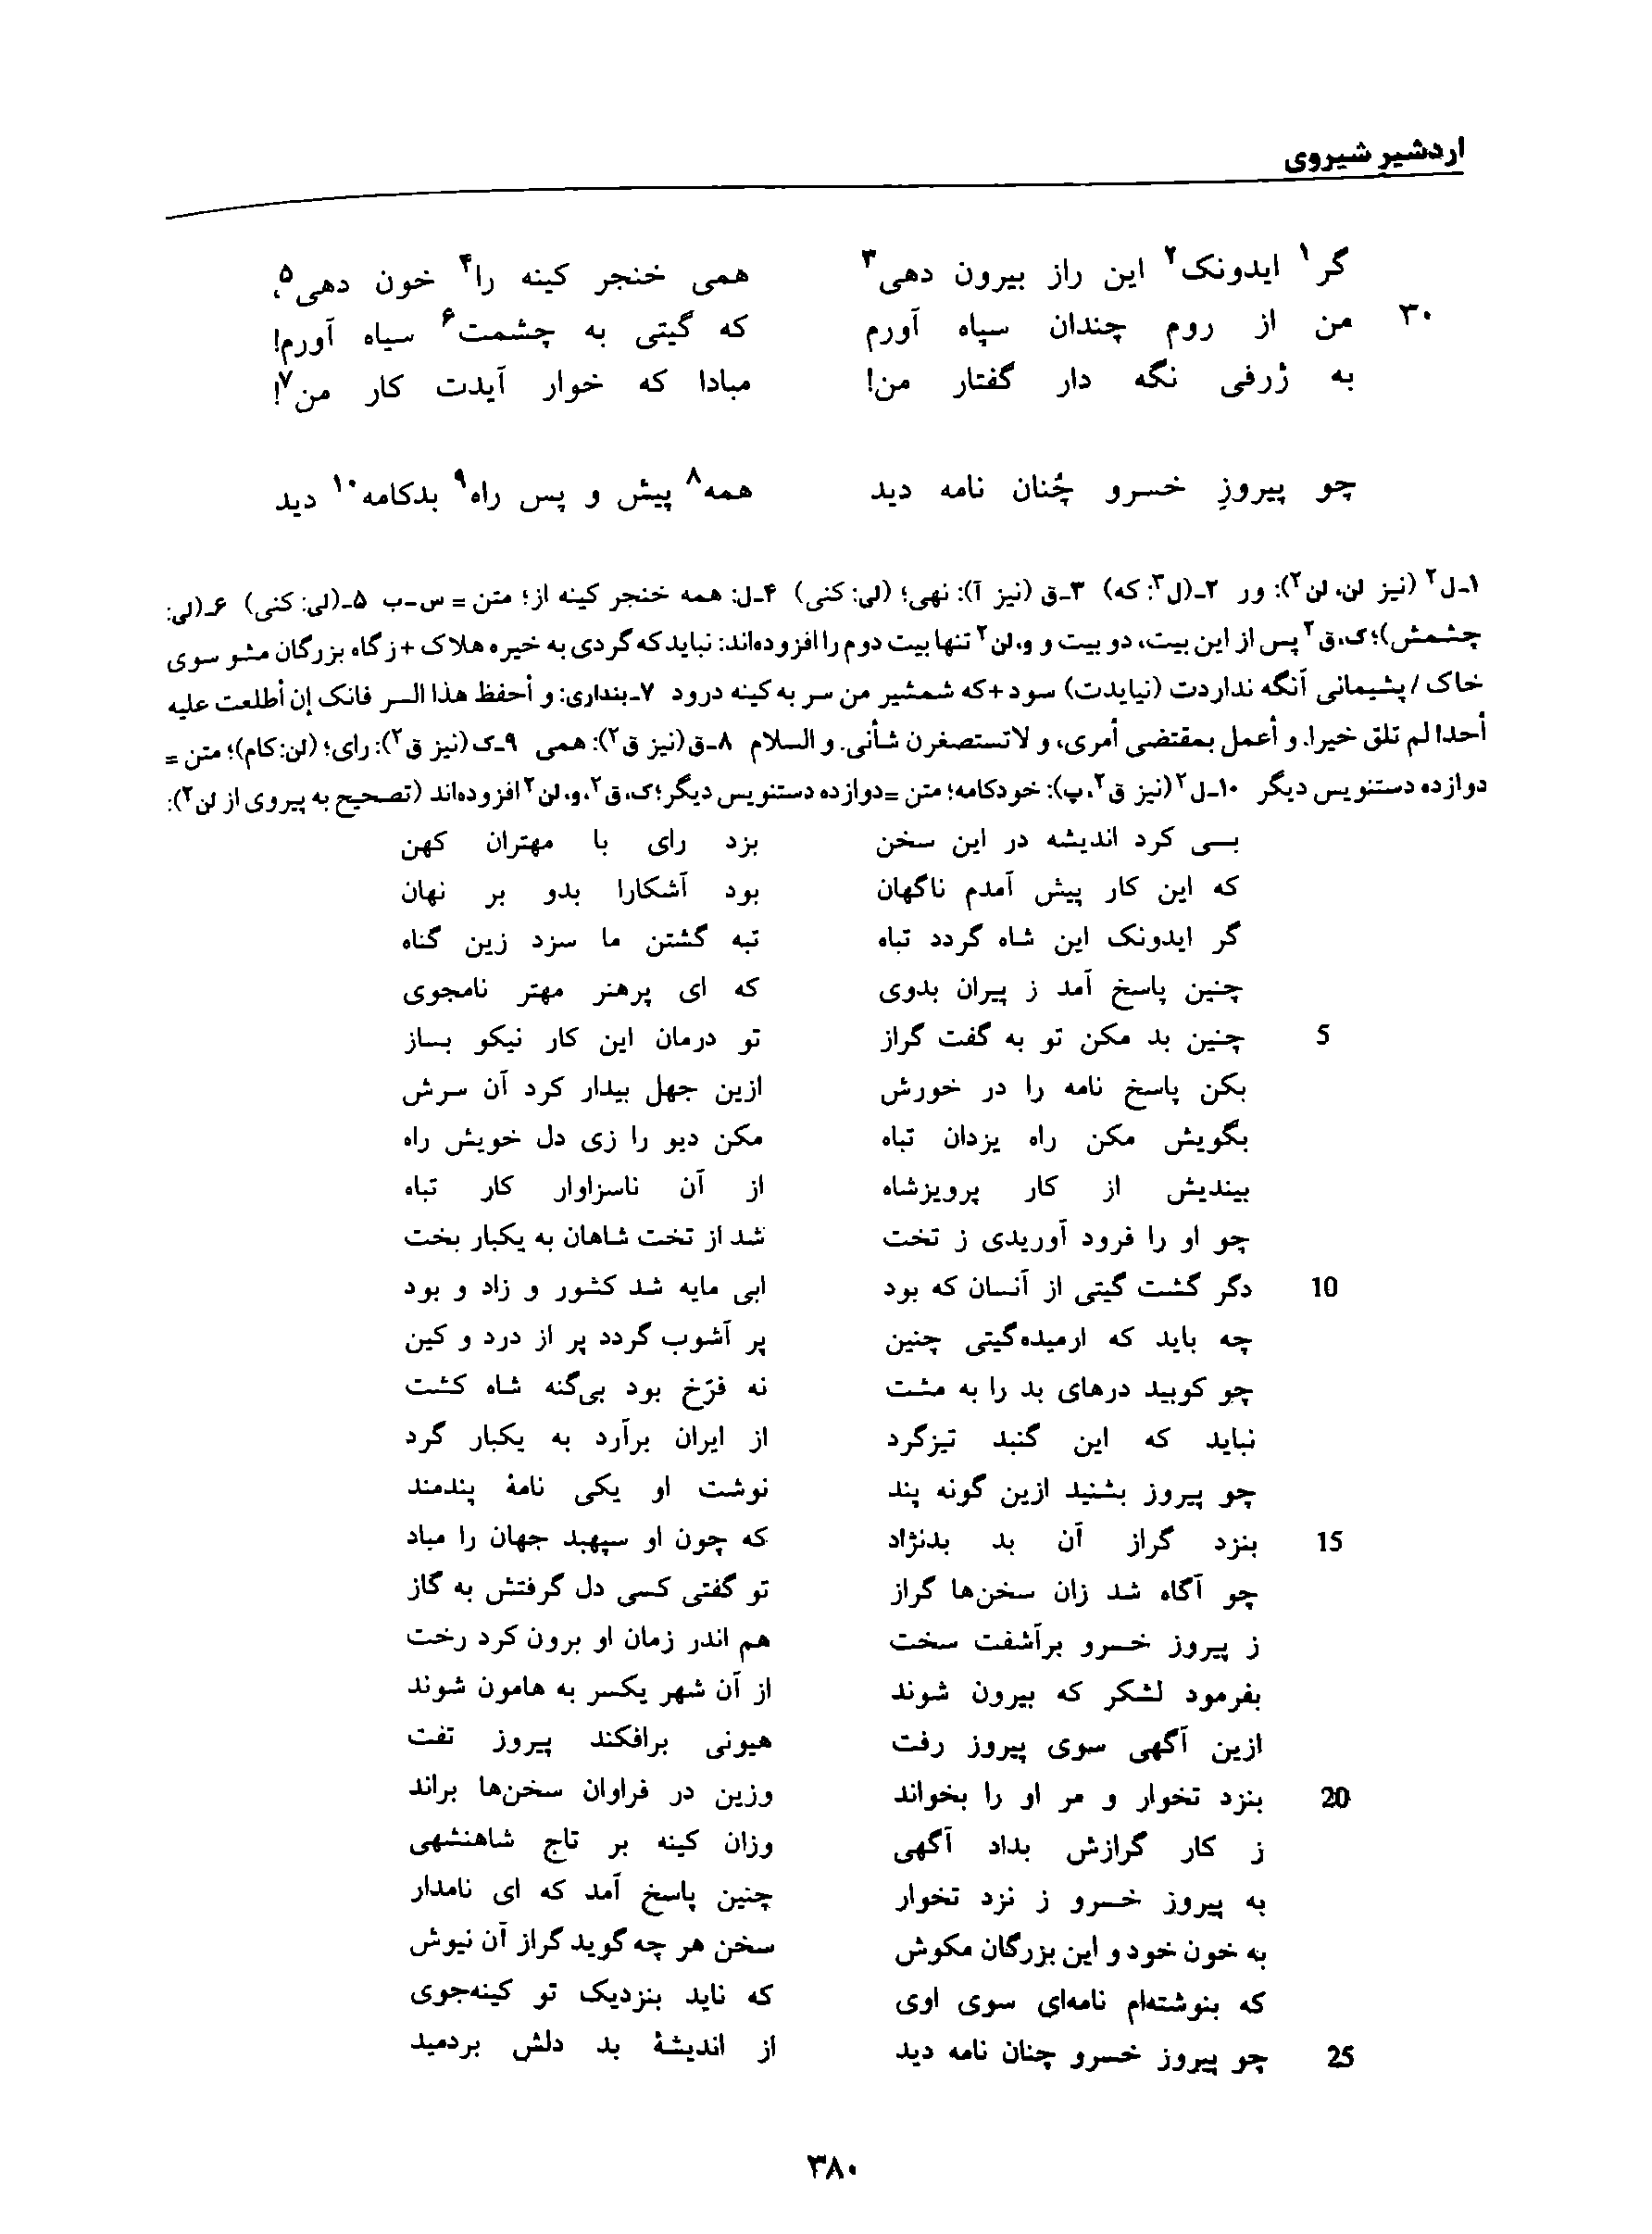 اردشیر شیروی
گر۱ ایدونک۲ این راز بیرون دهی۳ همی خنجر کینه را۴ خون دهی۵،
۳۰ من از روم چندان سپاه آورم که گیتی به چشمت۶ سیاه آورم!
به ژرفی نگه دار گفتار من! مبادا که خوار آیدت کار من۷!
چو پیروزِ خسرو چُنان نامه دید همه۸ پیش و پس راه۹ بدکامه۱۰ دید
۱ـ ل۲ (نیز لن، لن۲): ور ۲ـ (ل۳: که) ۳ـ ق (نیز آ): نهی؛ (لی: کنی) ۴ـ ل: همه خنجر کینه از؛ متن = س ـ ب ۵ـ (لی: کنی) ۶ـ (لی:
چشمش)؛ ک، ق۲ پس از این بیت، دو بیت و و، لن۲ تنها بیت دوم را افزوده‌اند: نباید که گردی به خیره هلاک + ز گاه بزرگان مشو سوی
خاک / پشیمانی آنگه نداردت (نیایدت) سود + که شمشیر من سر به کینه درود ۷ـ بنداری: و أحفظ هذا السر فانک إن أطلعت علیه
أحدا لم تلق خیرا. و أعمل بمقتضی أمری، و لاتستصغرن شأنی. و السلام ۸ـ ق (نیز ق۲): همی ۹ـ ک (نیز ق۲): رای؛ (لن: کام)؛ متن =
دوازده دستنویس دیگر ۱۰ـ ل۲ (نیز ق۲، پ): خودکامه؛ متن = دوازده دستنویس دیگر؛ ک، ق۲، و، لن۲ افزوده‌اند (تصحیح به پیروی از لن۲):
بسی کرد اندیشه در این سخن بزد رای با مهتران کهن
که این کار پیش آمدم ناگهان بود آشکارا بدو بر نهان
گر ایدونک این شاه گردد تباه تبه گشتن ما سزد زین گناه
چنین پاسخ آمد ز پیران بدوی که ای پرهنر مهتر نامجوی
5 چنین بد مکن تو به گفت گراز تو درمان این کار نیکو بساز
بکن پاسخ نامه را در خورش ازین جهل بیدار کرد آن سرش
بگویش مکن راه یزدان تباه مکن دیو را زی دل خویش راه
بیندیش از کار پرویزشاه از آن ناسزاوار کار تباه
چو او را فرود آوریدی ز تخت شد از تخت شاهان به یکبار بخت
10 دگر گشت گیتی از آنسان که بود ابی مایه شد کشور و زاد و بود
چه باید که ارمیده‌گیتی چنین پر آشوب گردد پر از درد و کین
چو کوبید درهای بد را به مشت نه فرّخ بود بی‌گنه شاه کشت
نباید که این گنبد تیزگرد از ایران برآرد به یکبار گرد
چو پیروز بشنید ازین گونه پند نوشت او یکی نامهٔ پندمند
15 بنزد گراز آن بد بدنژاد که چون او سپهبد جهان را مباد
چو آگاه شد زان سخن‌ها گراز تو گفتی کسی دل گرفتش به گاز
ز پیروز خسرو برآشفت سخت هم اندر زمان او برون کرد رخت
بفرمود لشکر که بیرون شوند از آن شهر یکسر به هامون شوند
ازین آگهی سوی پیروز رفت هیونی برافکند پیروز تفت
20 بنزد تخوار و مر او را بخواند وزین در فراوان سخن‌ها براند
ز کار گرازش بداد آگهی وزان کینه بر تاج شاهنشهی
به پیروز خسرو ز نزد تخوار چنین پاسخ آمد که ای نامدار
به خون خود و این بزرگان مکوش سخن هر چه گوید گراز آن نیوش
که بنوشته‌ام نامه‌ای سوی اوی که ناید بنزدیک تو کینه‌جوی
25 چو پیروز خسرو چنان نامه دید از اندیشهٔ بد دلش بردمید
۳۸۰